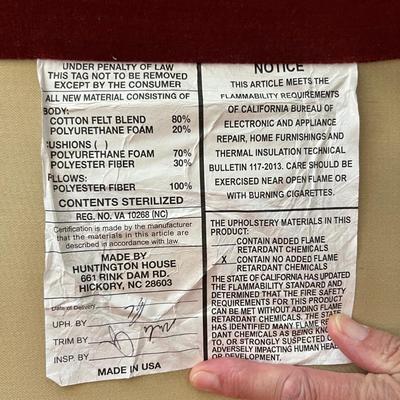 UNDER PENALTY OF LAW
THIS TAG NOT TO BE REMOVED
EXCEPT BY THE CONSUMER
ALL NEW MATERIAL CONSISTING OF
BODY:
COTTON FELT BLEND 80%
POLYURETHANE FOAM 20%
CUSHIONS ( )
POLYURETHANE FOAM 70%
POLYESTER FIBER 30%
PILLOWS:
POLYESTER FIBER 100%
CONTENTS STERILIZED
REG. NO. VA 10268 (NC)
Certification is made by the manufacturer
that the materials in this article are
described in accordance with law.
MADE BY
HUNTINGTON HOUSE
661 RINK DAM RD.
HICKORY, NC 28603
Date of Delivery
UPH. BY
TRIM BY
INSP. BY
MADE IN USA
NOTICE
THIS ARTICLE MEETS THE
FLAMMABILITY REQUIREMENTS
OF CALIFORNIA BUREAU OF
ELECTRONIC AND APPLIANCE
REPAIR, HOME FURNISHINGS AND
THERMAL INSULATION TECHNICAL
BULLETIN 117-2013. CARE SHOULD BE
EXERCISED NEAR OPEN FLAME OR
WITH BURNING CIGARETTES.
THE UPHOLSTERY MATERIALS IN THIS
PRODUCT:
CONTAIN ADDED FLAME
RETARDANT CHEMICALS
X CONTAIN NO ADDED FLAME
RETARDANT CHEMICALS
THE STATE OF CALIFORNIA HAS UPDATED
THE FLAMMABILITY STANDARD AND
DETERMINED THAT THE FIRE SAFETY
REQUIREMENTS FOR THIS PRODUCT
CAN BE MET WITHOUT ADDING FLAME
RETARDANT CHEMICALS. THE STATE
HAS IDENTIFIED MANY FLAME RE
DANT CHEMICALS AS BEING KNO
TO, OR STRONGLY SUSPECTED O
ADVERSELY IMPACTING HUMAN HEA
OR DEVELOPMENT.